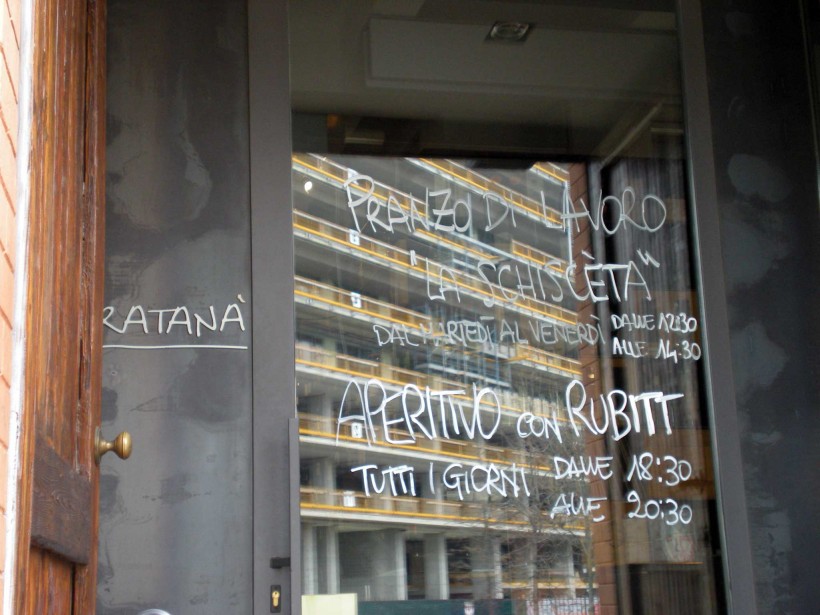 RATANÀ
PRANZO DI LAVORO
"LA SCHISCÈTA"
DAL MARTEDÌ AL VENERDÌ DALLE 12:30
ALLE 14:30
APERITIVO CON RUBITT
TUTTI I GIORNI DALLE 18:30
ALLE 20:30